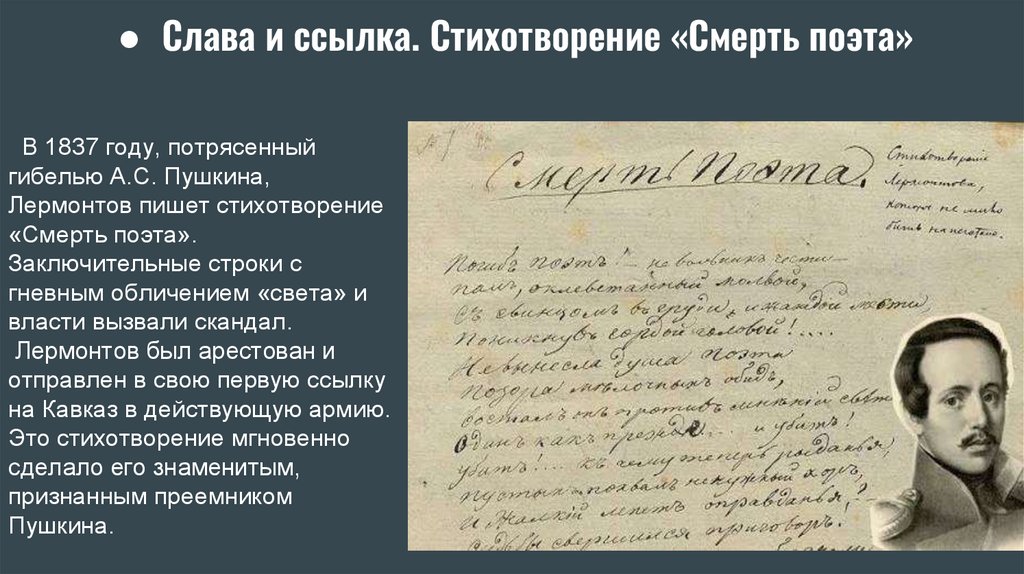 ● Слава и ссылка. Стихотворение «Смерть поэта»
В 1837 году, потрясенный
гибелью А.С. Пушкина,
Лермонтов пишет стихотворение
«Смерть поэта».
Заключительные строки с
гневным обличением «света» и
власти вызвали скандал.
Лермонтов был арестован и
отправлен в свою первую ссылку
на Кавказ в действующую армию.
Это стихотворение мгновенно
сделало его знаменитым,
признанным преемником
Пушкина.
Смерть Поэта.
Стихотворение
Лермонтова,
которое не
быть напечатано.
Погибъ поэтъ! — невольникъ чести —
палъ, оклеветанный молвой,
Съ свинцомъ въ груди, и жаждой мести,
Поникнувъ гордой головой!....
Невынесла душа поэта
Позора мелочныхъ обидъ,
возсталъ онъ противъ мнѣній свѣта
Одинъ какъ прежде.... и убитъ!
убитъ!... къ чему теперь рыданья,
пустыхъ похвалъ ненужный хоръ,
И жалкій лепетъ оправданья?
Судьбы свершился приговоръ!